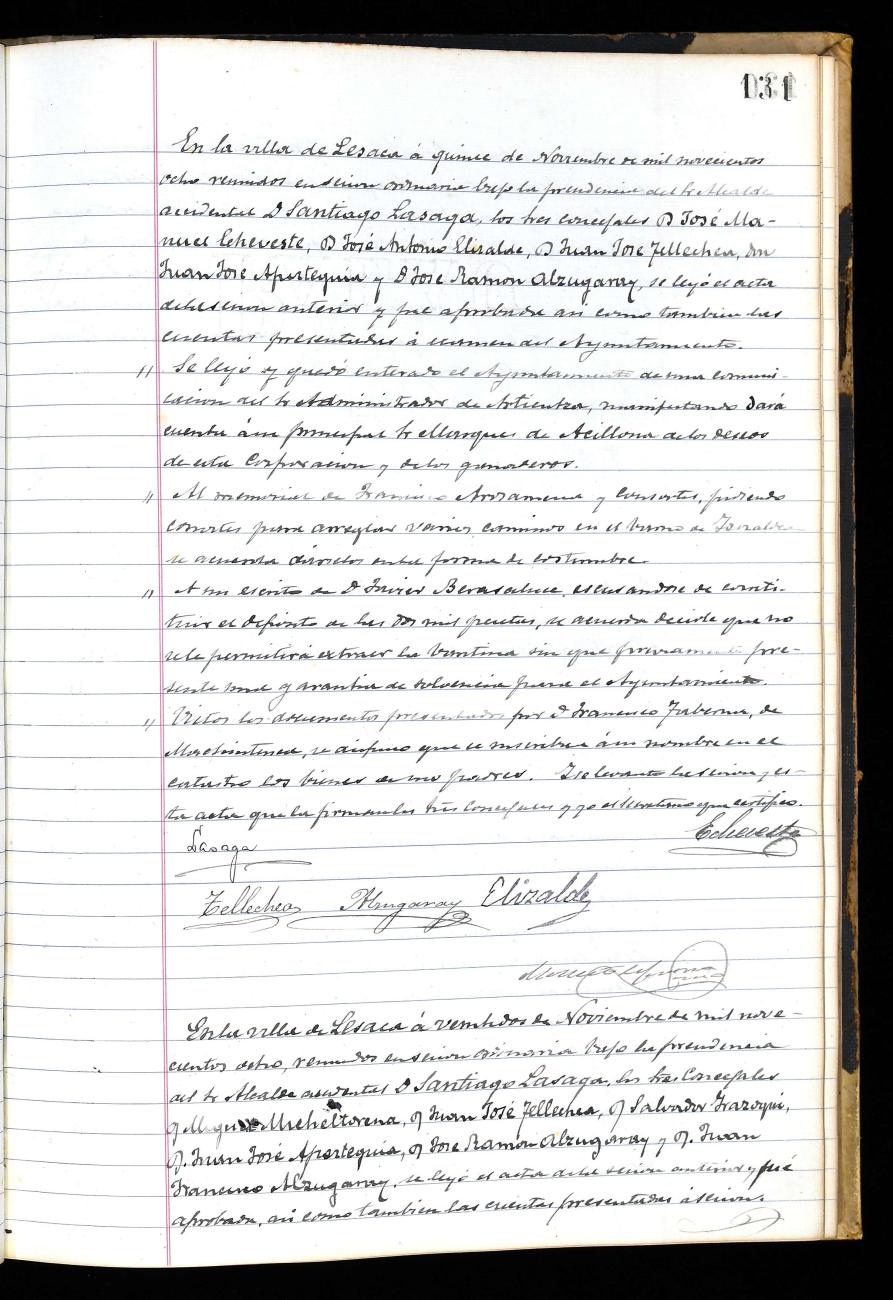 131
En la villa de Lesaca á quince de Noviembre de mil novecientos
ocho reunidos en sesion ordinaria bajo la presidencia del Sr Alcalde
accidental D Santiago Lasaga, los tres concejales D José Ma-
nuel Echeveste, D José Antonio Elizalde, D Juan Jose Tellechea, Don
Juan Jose Apesteguia y D Jose Ramon Alzugaray, se leyó el acta
de la sesion anterior y fue aprobada asi como tambien las
cuentas presentadas á examen del Ayuntamiento.
" Se leyó y quedó enterado el Ayuntamiento de una comuni-
cacion del Sr Administrador de Articutza, manifestando dará
cuenta á su principal Sr Marques de Acillona de los deseos
de esta Corporacion y de los ganaderos.
" Al memorial de Francisco Arozamena y Consortes, pidiendo
para arreglar varios caminos en el barrio de
se acuerda dárselos en la forma de costumbre.
" A un escrito de D Javier Berasaluce, escusandose de consti-
tuir el depósito de las dos mil pesetas, se acuerda decirle que no
se le permitirá extraer la sin que previamente pre-
sente una garantia de solvencia para el Ayuntamiento.
" Vistos los documentos presentados por D Francisco Taberna, de
se dispuso que se inscriban á su nombre en el
catastro los bienes de sus padres. Y se levantó la sesion y es-
ta acta que la firman los tres Concejales y yo el Secretario que certifico.
Lasaga
Echeveste
Tellechea Alzugaray Elizalde
En la villa de Lesaca á veintidos de Noviembre de mil nove-
cientos ocho, reunidos en sesion ordinaria bajo la presidencia
del Sr Alcalde accidental D Santiago Lasaga, los tres Concejales
D Miguel Micheltorena, D Juan José Tellechea, D Salvador Irazoqui,
D. Juan José Apesteguia, D Jose Ramón Alzugaray y D. Juan
Francisco Alzugaray, se leyó el acta de la sesion anterior y fué
aprobada, asi como tambien las cuentas presentadas á sesion.